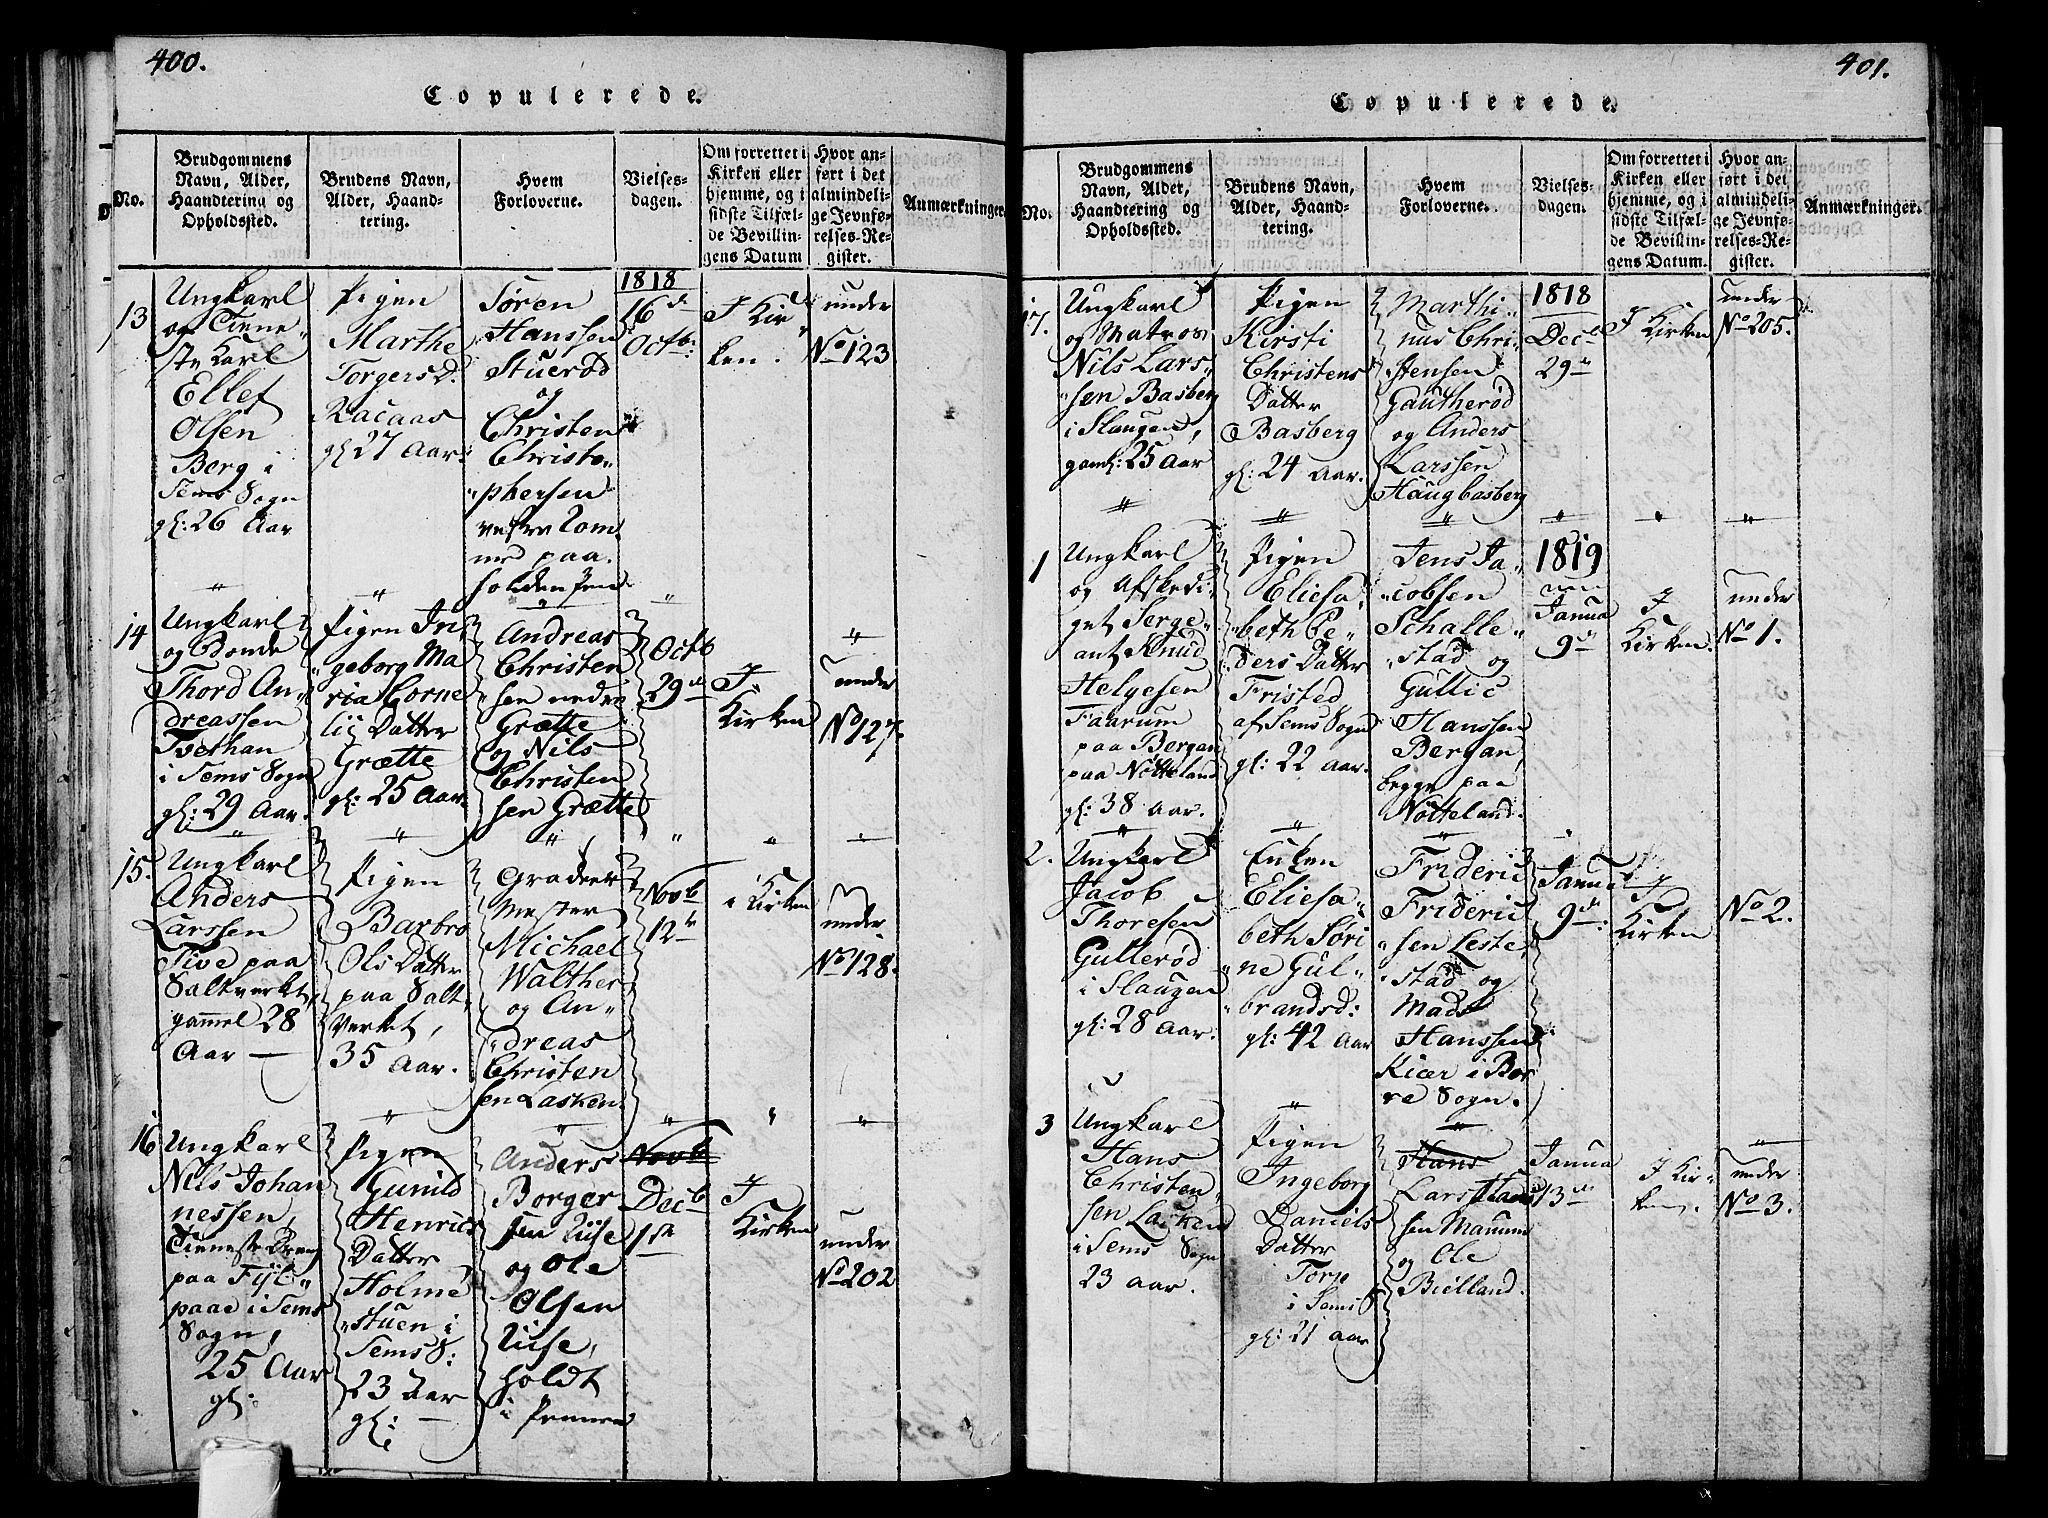 400.
Copulerede.
No.
Brudgommens
Navn, Alder,
Haandtering og
Opholdssted.
Brudens Navn,
Alder, Haand-
tering.
Hvem
Forloverne.
Vielses-
dagen.
Om forrettet i
Kirken eller
hjemme, og i
sidste Tilfæl-
de Bevillin-
gens Datum
Hvor an-
ført i det
almindeli-
ge Jevnfø-
relses-Re-
gister.
Anmærkninger.
13
Ungkarl
og Tiene-
ste Karl
Ellef
Olsen
Berg i
Sems Sogn
gl: 26 Aar
Pigen
Marthe
Torgersd.
Racaas
gl 27 Aar:
Søren
Hanssen
Stuerød
og
Christen
Christo-
phersen
vestre Rom-
med paa.
1818
16 d
Octb:
I Kir-
ken.
under
No 123
14
Ungkarl
og Bonde
Thord An-
dreassen
Tvethan
i Sems Sogn
gl: 29 Aar.
Pigen In-
geborg Ma-
ria Corne
lii Datter
Grætte
gl: 25 Aar.
Andreas
Christen
sen nedre
Grætte
og Nils
Christen
sen Grætte
Octb
29 d
I
Kirken
under
No 127.
15.
Ungkarl
Anders
Larssen
Five paa
Saltverket,
gammel 28
Aar —
Pigen
Barbro
Ols Datter
paa Salt-
Verket,
35 Aar.
Gradeer
Mester
Michael
Walther
og An-
dreas
Christen
sen Lasken.
Novb
12 te
i Kirken
under
No 128.
16
Ungkarl
Nils Johan
nessen,
Tieneste Dreng
paa Fÿl-
paae i Sems
Sogn,
25 Aar
gl:
Pigen
Gunild
Henrics
Datter
Holme
stuen i
Sems S:
23 Aar
gl: —
Anders
Borger
sen Riise
og Ole
Olsen
Riise,
holdt
i Pennen
Novb
Decb
1ste
I
Kirken
under
No 202
401.
Copulerede.
No.
Brudgommens
Navn, Alder,
Haandtering og
Opholdssted.
Brudens Navn,
Alder, Haand-
tering.
Hvem
Forloverne.
Vielses-
dagen.
Om forrettet i
Kirken eller
hjemme, og i
sidste Tilfæl-
de Bevillin-
gens Datum.
Hvor an-
ført i det
almindeli-
ge Jevnfø-
relses-Re-
gister.
Anmærkninger.
17.
Ungkarl
og Matros
Nils Lars-
sen Basberg
i Slaugen,
gaml: 25 Aar
Pigen
Kirsti
Christens
Datter
Basberg
gl: 24 Aar.
Marthi-
nus Chri-
stensen
Gautherød
og Anders
Larssen
Haugbasberg
1818
Dec
29 d
I Kirken
under
No 205.
1
Ungkarl
og Afskedi-
get Serge-
ant Knud
Helgesen
Faarum
paa Bergan
paa Nötteland
gl: 38 Aar.
Pigen
Eliesa-
beth Pe-
ders Datter
Fristed
af Sems Sogn
gl: 22 Aar.
Jens Ja-
cobsen
Schalle-
stad og
Gullic
Hanssen
Bergan,
begge paa
Nötteland.
1819
Janua
9 d
I
Kirken.
under
No 1.
2.
Ungkarl
Jacob
Thoresen
Gullerød
i Slaugen
gl: 28 Aar.
Enken
Eliesa-
beth Søri-
ne Gul-
brandsd:
gl: 42 Aar
Frideric
Frideric
sen Leste-
stad og
Mads
Hanssen
Kiær i Bor
re Sogn.
Janua
9 d:
I
Kirken
No 2.
3
Ungkarl
Hans
Christen-
sen Lasken
i Sems Sogn
23 Aar.
Pigen
Ingeborg
Daniels
Datter
Torp
i Sems S
gl: 21 Aar
Hans
Lars Hans
sen Marum
og Ole
Bielland.
Janua
13 d
I Kir-
ken.
under
No 3.